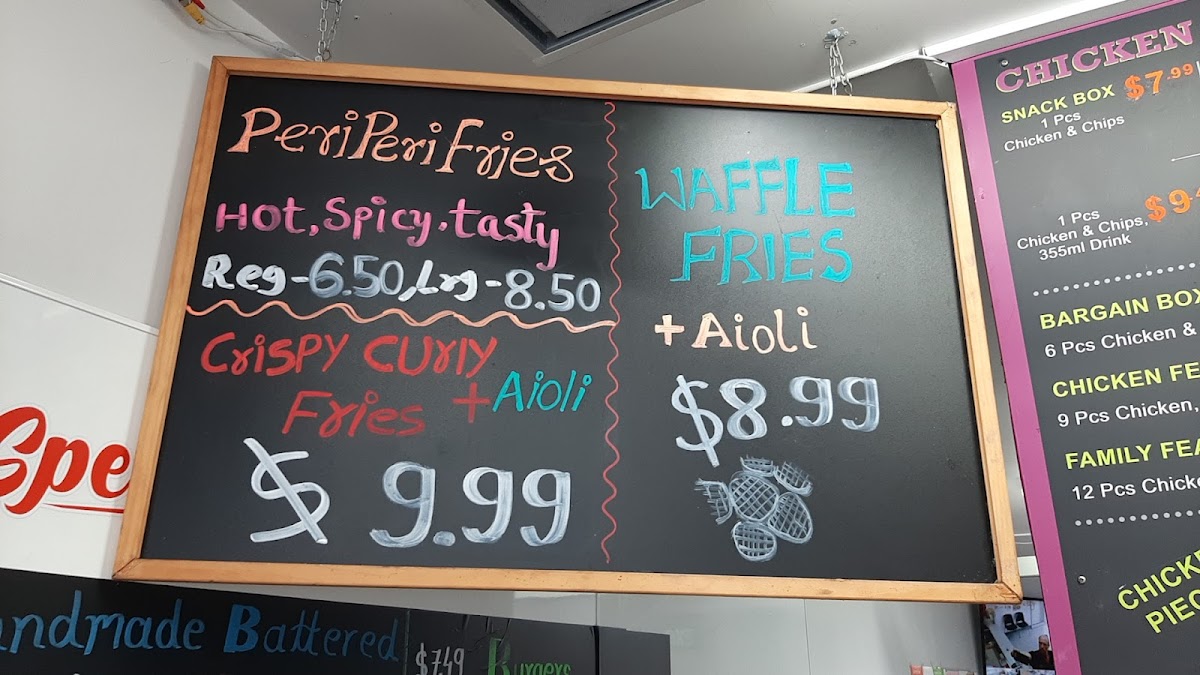 PeriPeri Fries
Hot, Spicy, tasty
Reg-6.50, Lrg-8.50
Crispy Curly
Fries + Aioli
$ 9.99
WAFFLE
FRIES
+ Aioli
$8.99
CHICKEN
SNACK BOX $7.99
1 Pcs
Chicken & Chips
1 Pcs
Chicken & Chips,
355ml Drink
BARGAIN BOX
6 Pcs Chicken &
CHICKEN FE
9 Pcs Chicken,
FAMILY FEA
12 Pcs Chicke
CHICK
PIEC
Spe
ndmade Battered
$7.49 Burgers